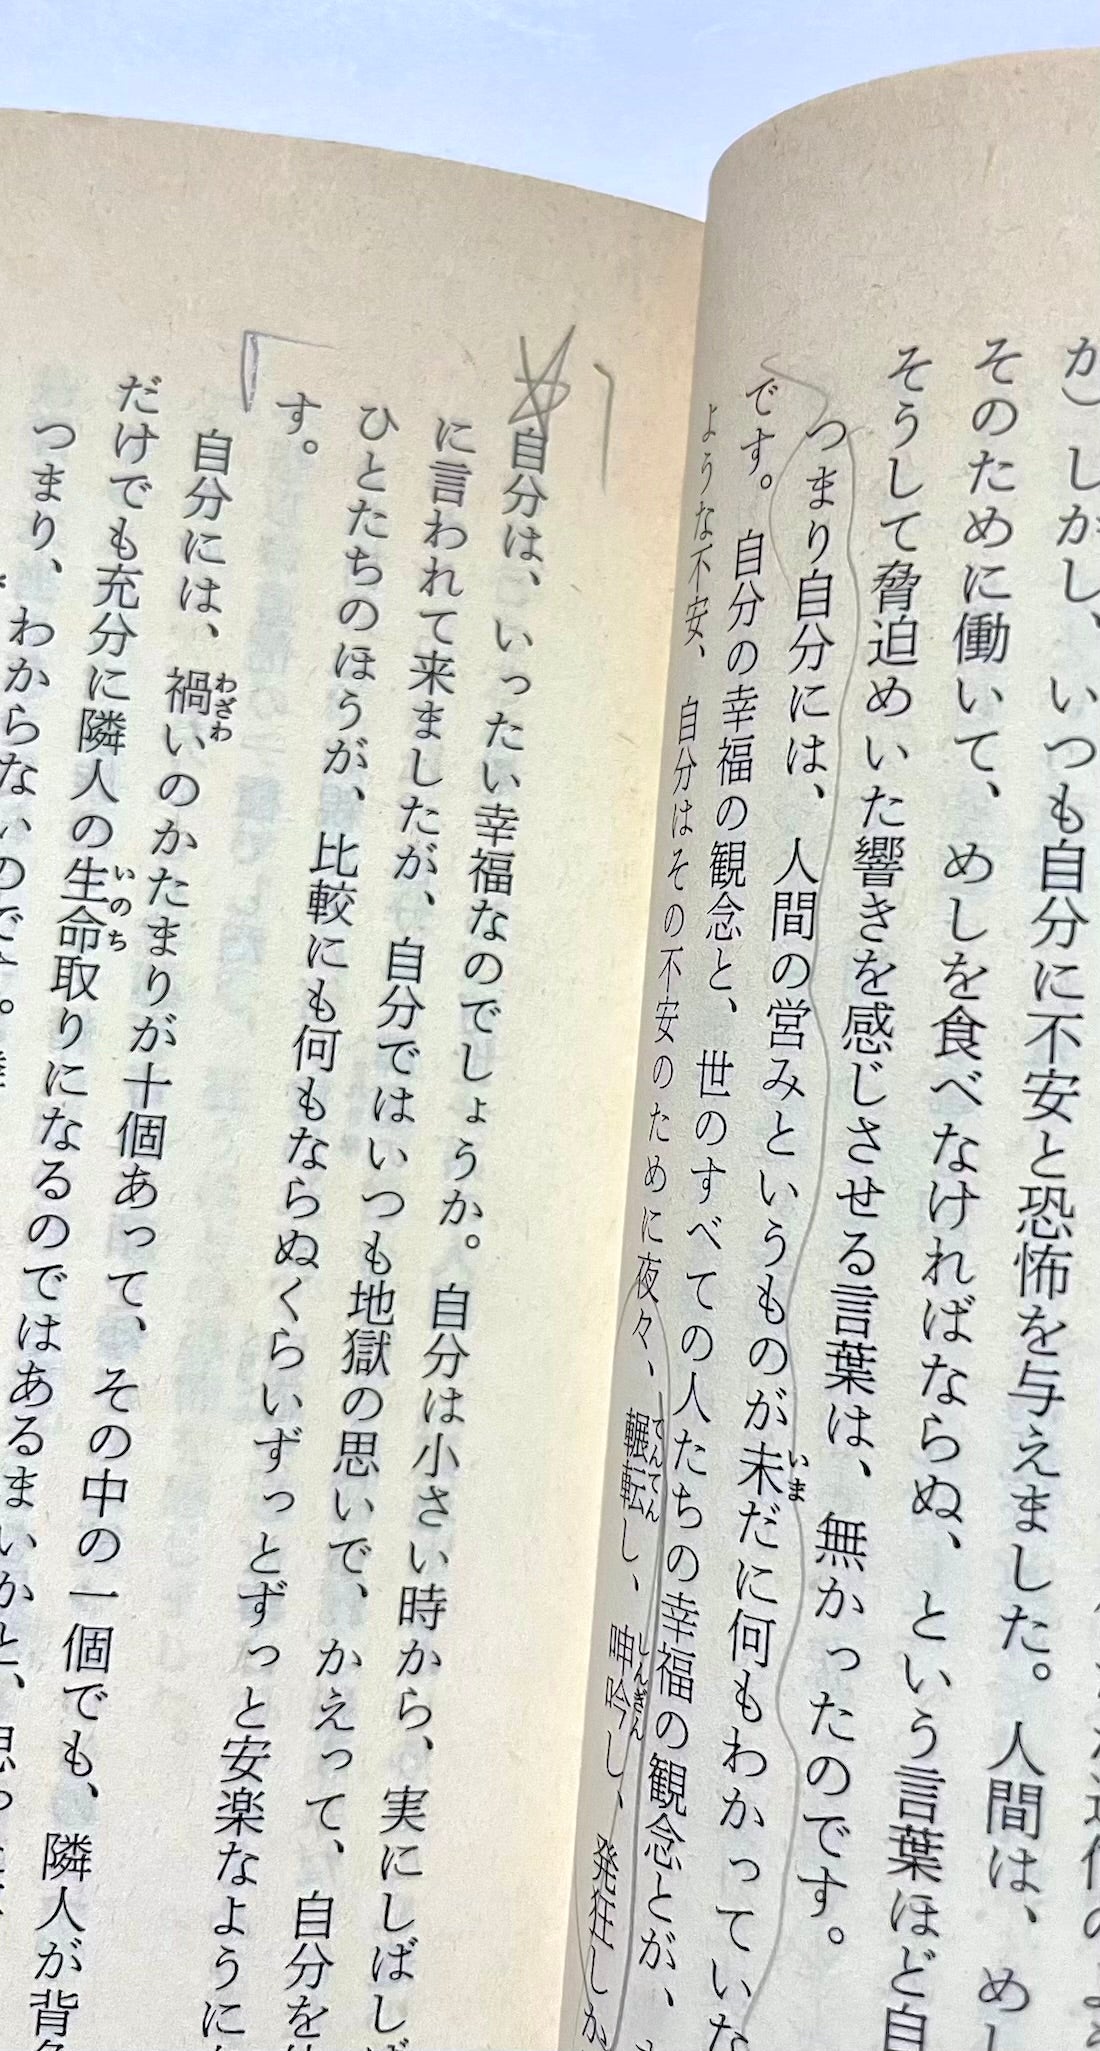 か）しかし、いつも自分に不安と恐怖を与えました。人間は、めし
そのために働いて、めしを食べなければならぬ、という言葉ほど自
そうして脅迫めいた響きを感じさせる言葉は、無かったのです。
つまり自分には、人間の営みというものが未だに何もわかっていな
です。自分の幸福の観念と、世のすべての人たちの幸福の観念とが、
ような不安、自分はその不安のために夜々、輾転し、呻吟し、発狂しか
自分は、いったい幸福なのでしょうか。自分は小さい時から、実にしばし
に言われて来ましたが、自分ではいつも地獄の思いで、かえって、自分を
ひとたちのほうが、比較にも何もならぬくらいずっとずっと安楽なように
す。
自分には、禍いのかたまりが十個あって、その中の一個でも、隣人が背
だけでも充分に隣人の生命取りになるのではあるまいかと、思っ
つまり、わからないのです。